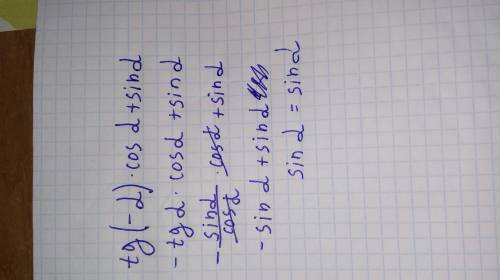 tg(-α)·cosα+sinα
-tgα·cosα+sinα
-sinα/cosα·cosα+sinα
-sinα+sinα
sinα=sinα